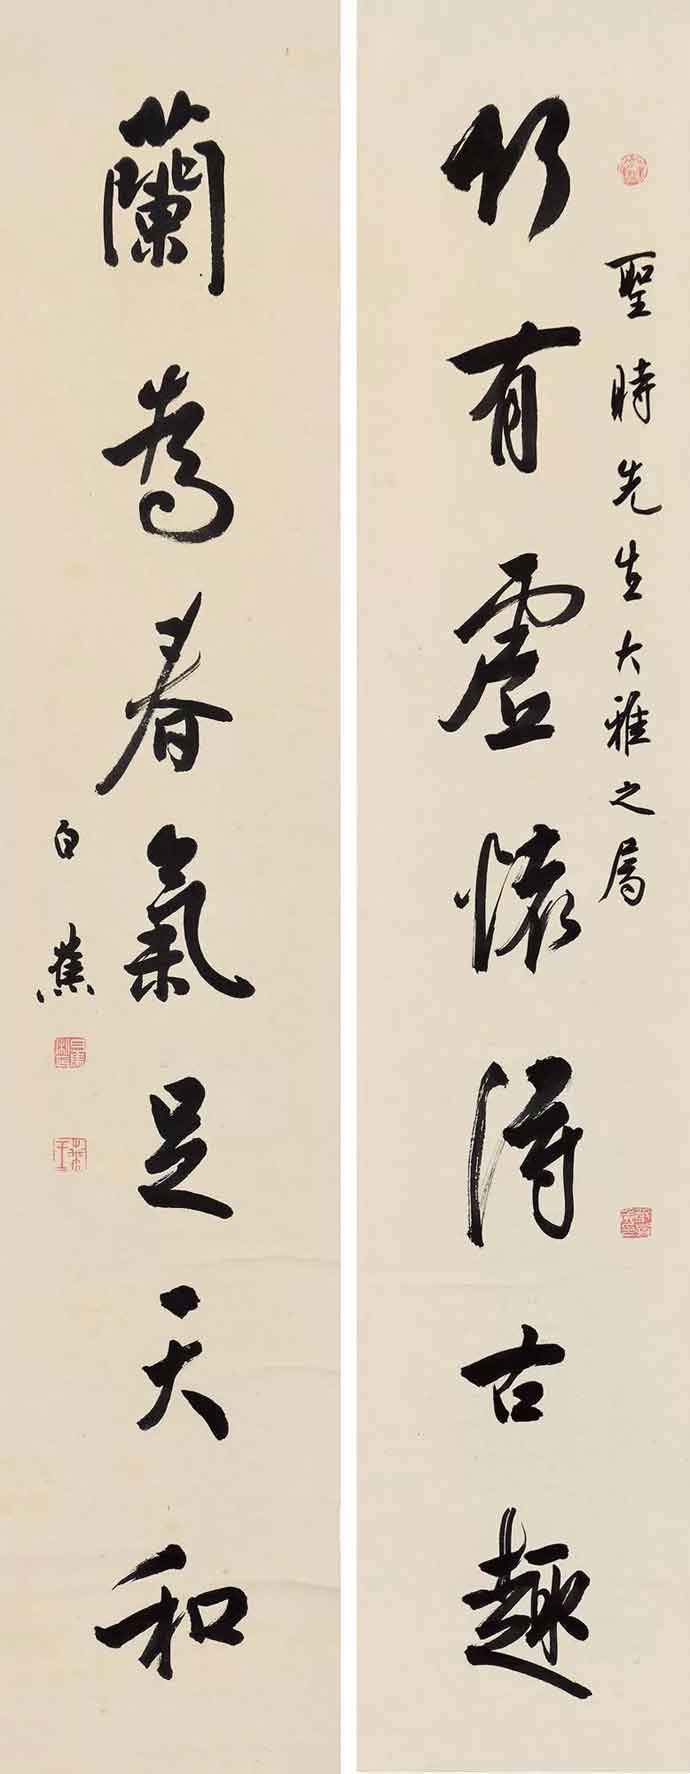 聖時先生大雅之屬
竹有虛懷得古趣
蘭為春氣足天和
白蕉